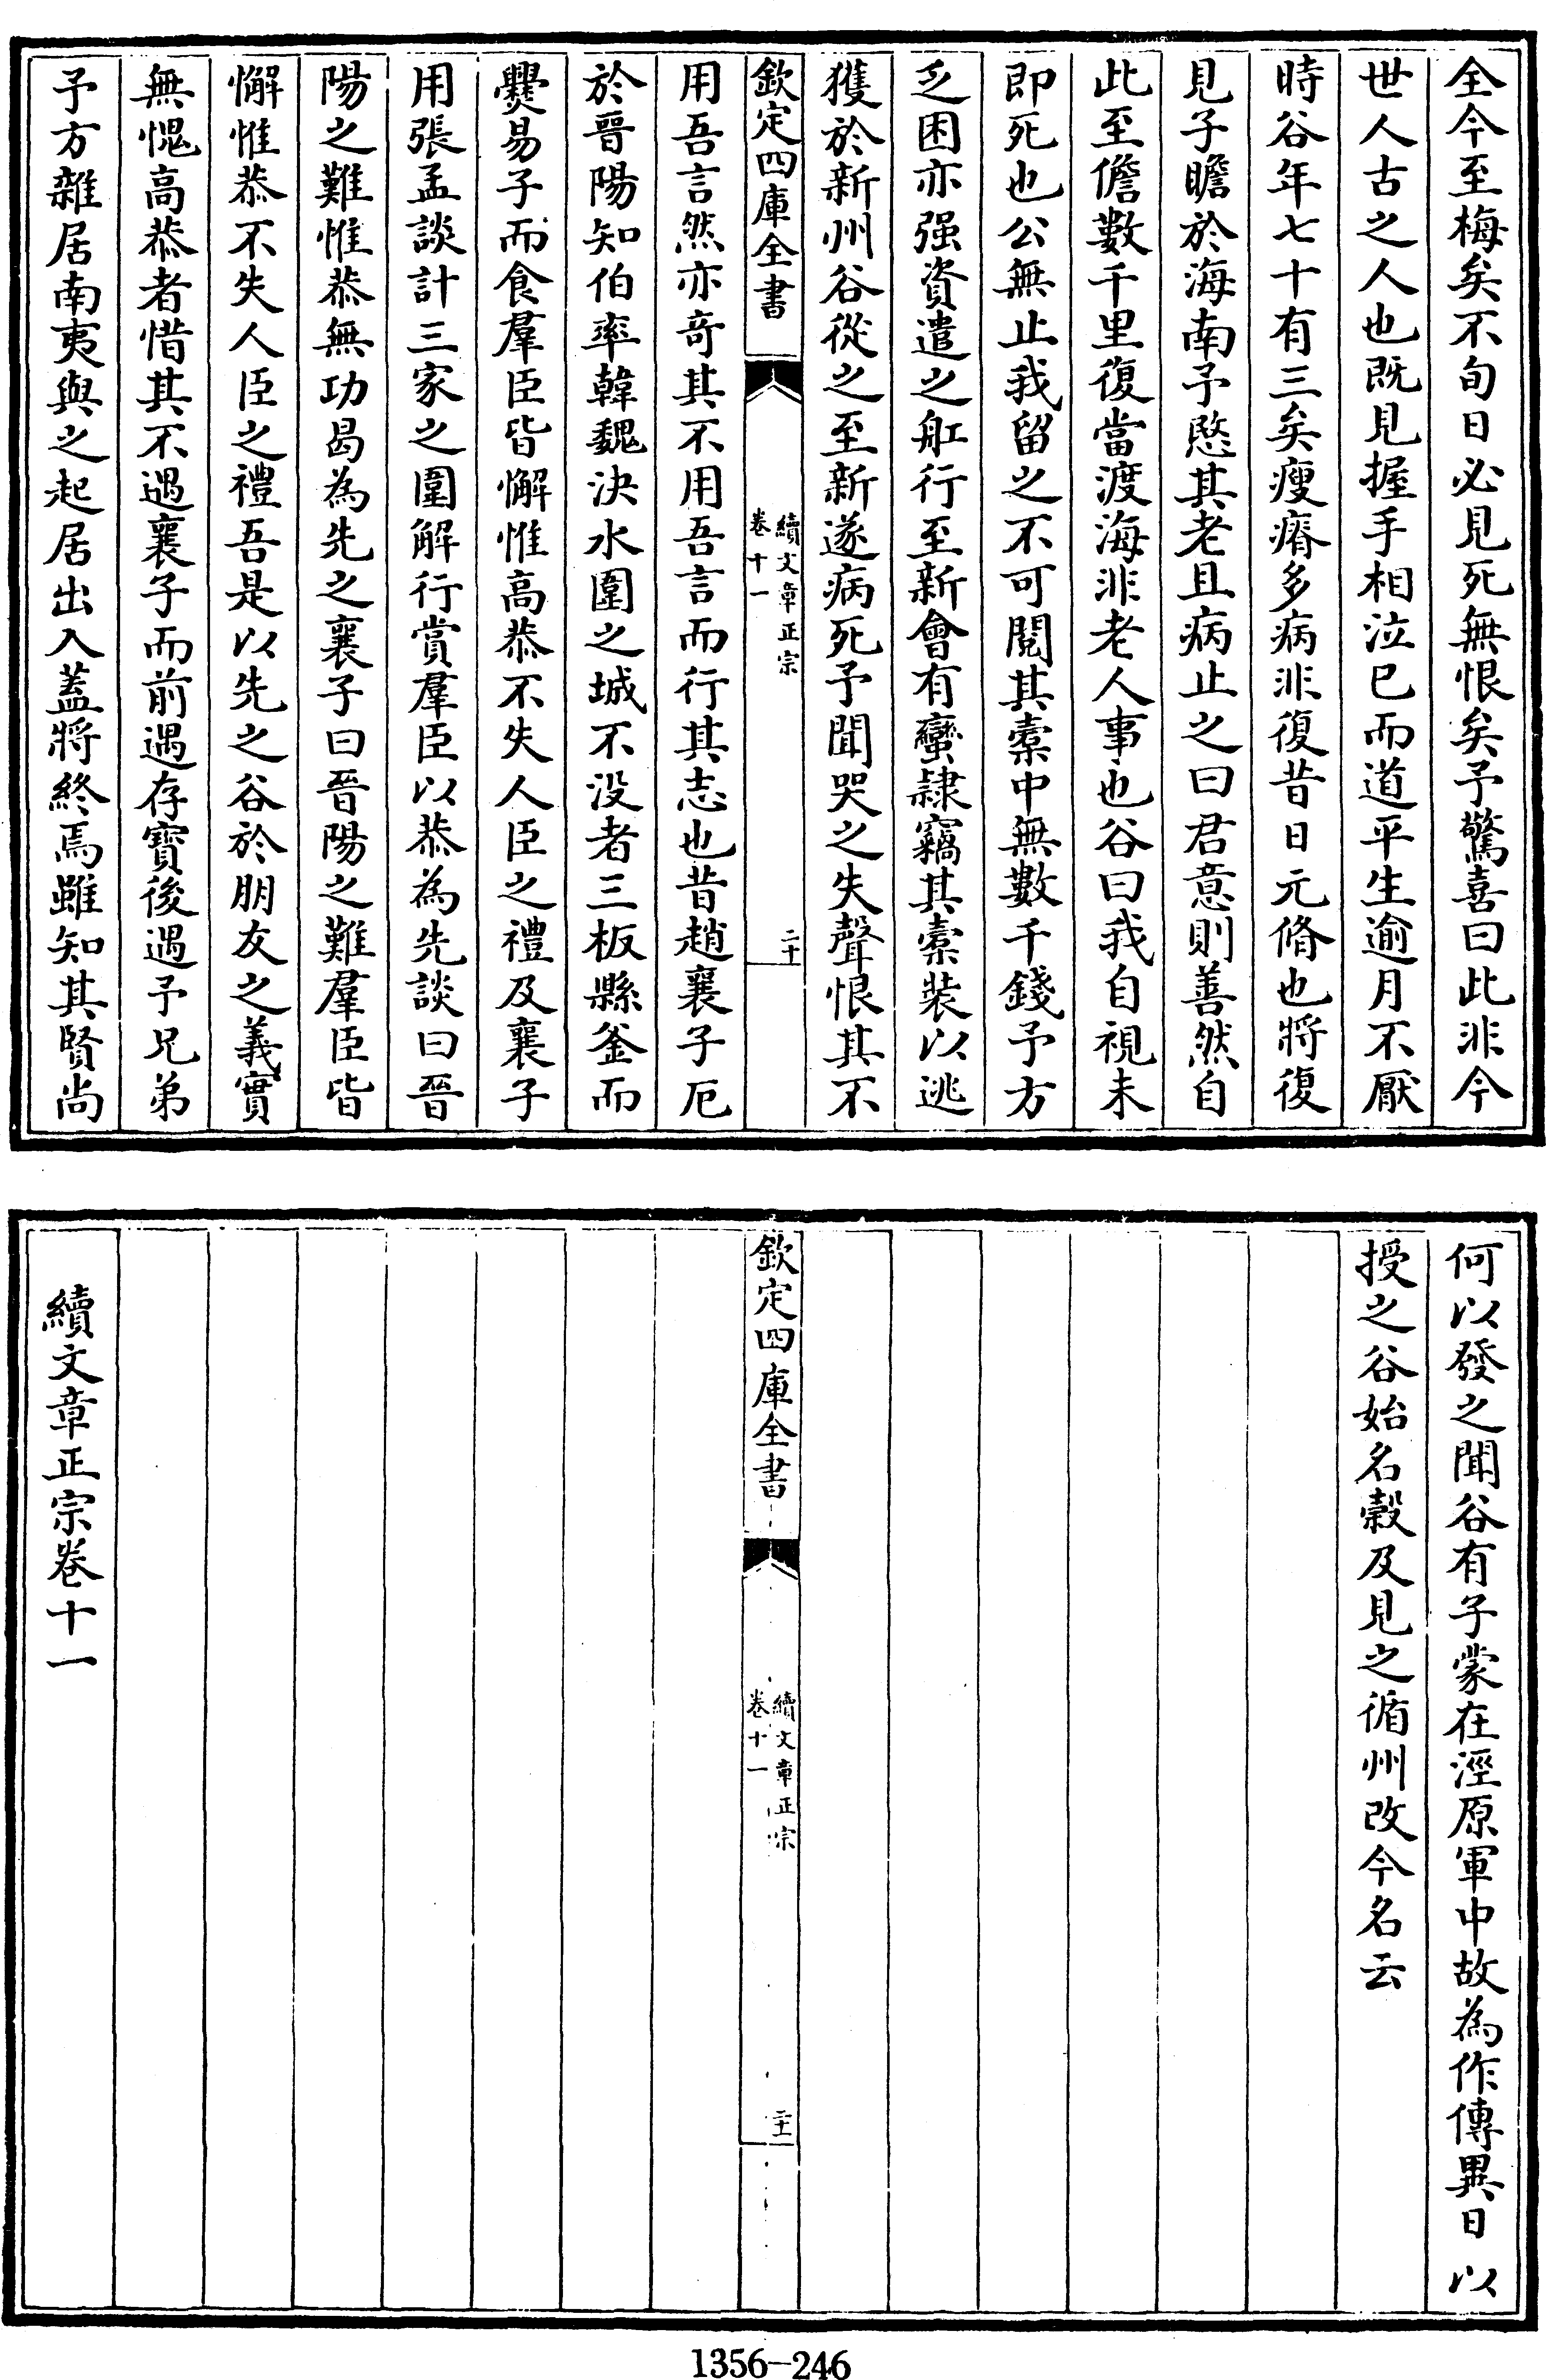 全今至梅矣不旬日必見死無恨矣予驚喜曰此非今
世人古之人也既見握手相泣已而道平生逾月不厭
時谷年七十有三矣瘦瘠多病非復昔日元脩也將復
見子瞻於海南予愍其老且病止之曰君意則善然自
此至儋數千里復當渡海非老人事也谷曰我自視未
即死也公無止我留之不可閱其橐中無數千錢予方
乏困亦强資遣之舡行至新會有蠻隸竊其橐裝以逃
獲於新州谷從之至新遂病死予聞哭之失聲恨其不
欽定四庫全書
續文章正宗
卷十一
二十
用吾言然亦竒其不用吾言而行其志也昔趙襄子厄
於晉陽知伯率韓魏決水圍之城不没者三板縣釜而
爨易子而食羣臣皆懈惟高恭不失人臣之禮及襄子
用張孟談計三家之圍解行賞羣臣以恭為先談曰晉
陽之難惟恭無功曷為先之襄子曰晉陽之難羣臣皆
懈惟恭不失人臣之禮吾是以先之谷於朋友之義實
無愧高恭者惜其不遇襄子而前遇存寶後遇予兄弟
予方雜居南夷與之起居出入蓋將終焉雖知其賢尚
何以發之聞谷有子蒙在涇原軍中故為作傳異日以
授之谷始名榖及見之循州改今名云
欽定四庫全書
續文章正宗
卷十一
二十一
續文章正宗卷十一
1356-246